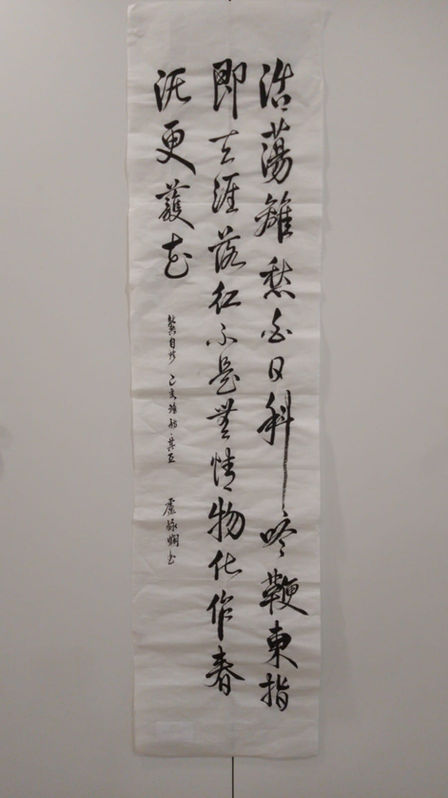 浩蕩離愁白日斜吟鞭東指
即天涯落紅不是無情物化作春
泥更護花
龔自珍 己亥雜詩·其五 盧詠嫻書